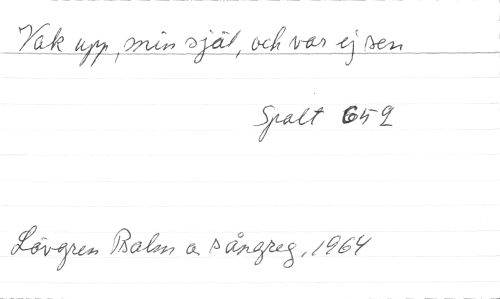 Vak upp, min själ, och var ej sen
Spalt 652
Lövgren Psalm o sångreg, 1964